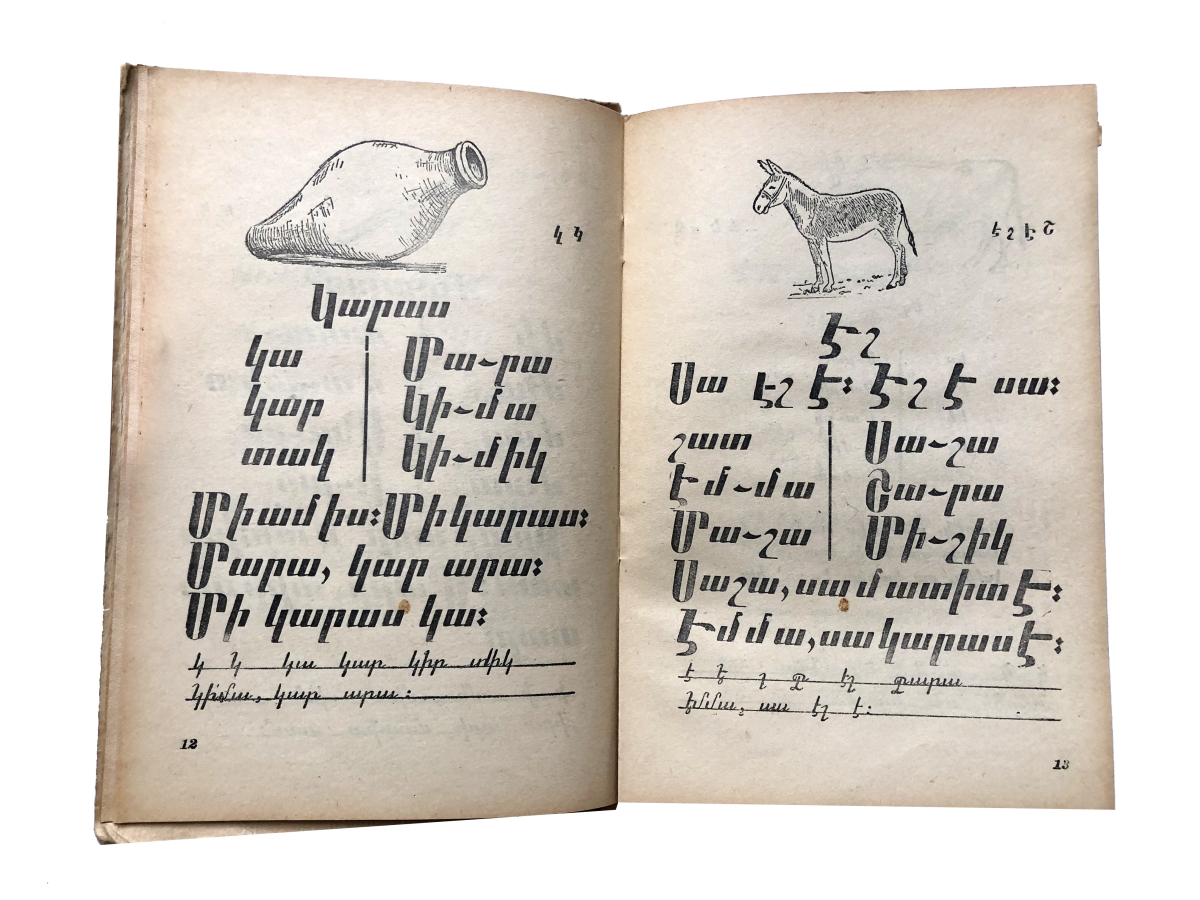 կ Կ
Կարաս
կա Մա-րա
կար Կի-մա
տակ Կի-միկ
Մի ամիս։ Մի կարաս։
Մարա, կար արա։
Մի կարաս կա։
կ Կ կա կար կիր
Կիմա, կար արա։
12
է շ Է Շ
Էշ
Սա էշ է։ Էշ է սա։
շատ Սա-շա
Էմ-մա Շա-րա
Մա-շա Մի-շիկ
Սաշա, սա մատիտ է։
Էմմա, սա կարաս է։
է Է շ Շ էշ Շարա
Էմմա, սա էշ է։
13